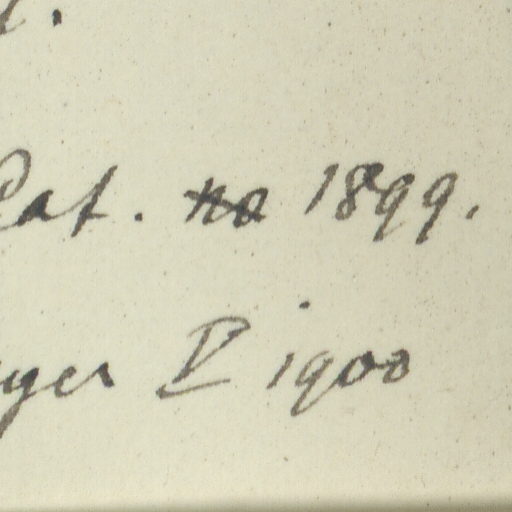 Cat. no 1899.
yer V 1900